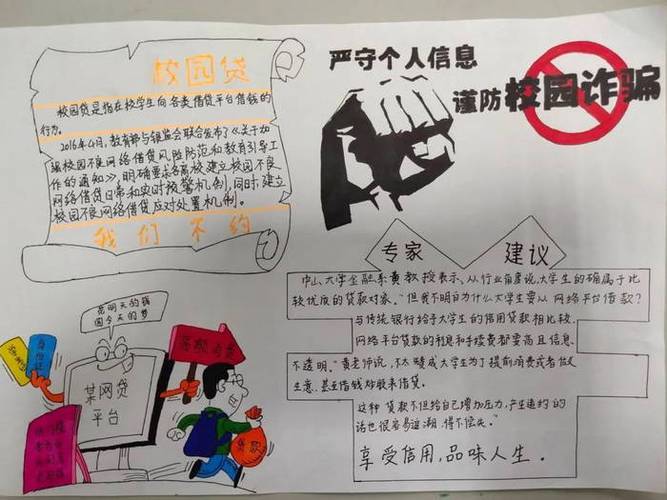 校园贷
校园贷是指在校学生向各类借贷平台借钱的
行为.
2016年4月,教育部与银监会联合发布了《关于加
强校园不良网络借贷风险防范和教育引导工
作的通知》,明确要求各高校建立校园不良
网络借贷日常和实时预警机制,同时,建立
校园不良网络借贷应对处置机制.
我们不约
严守个人信息
谨防校园诈骗
专家 建议
中山大学金融系黄教授表示、从行业角度说,大学生的确属于比
较优质的贷款对象."但我不明白为什么大学生要从网络平台借款?
与传统银行给予大学生的信用贷款相比较.
网络平台贷款的利息和手续费都要高且信息
不透明."黄老师说,不太赞成大学生为了提前消费或者做
生意.甚至借钱炒股来借贷.
这种贷款不但给自己增加压力,产生违约的
话也很容易追溯.得不偿失."
享受信用,品味人生.
花明天的钱
圆今天的梦
某网贷
平台
身份证
学生证
超额消费
贷款